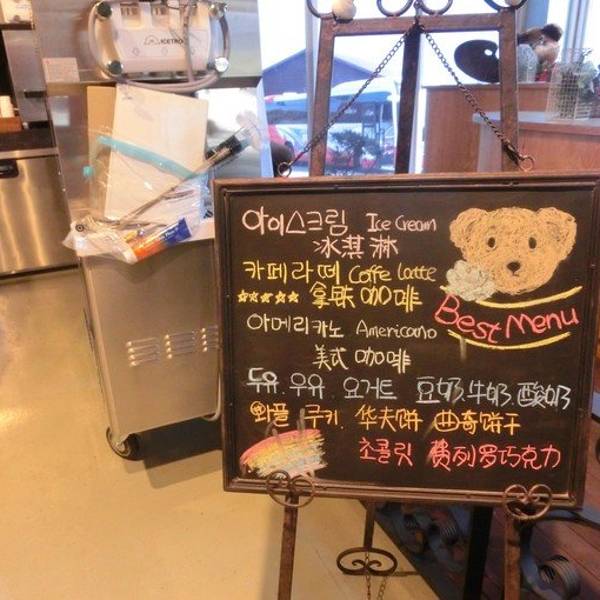 ICETRO
아이스크림 Ice Cream
冰淇淋
카페라떼 Caffe Latte
☆☆☆☆☆ 拿铁咖啡
Best Menu
아메리카노 Americano
美式咖啡
두유. 우유. 요거트 豆奶.牛奶.酸奶
와플 쿠키. 华夫饼 曲奇饼干
초콜릿 费列罗巧克力